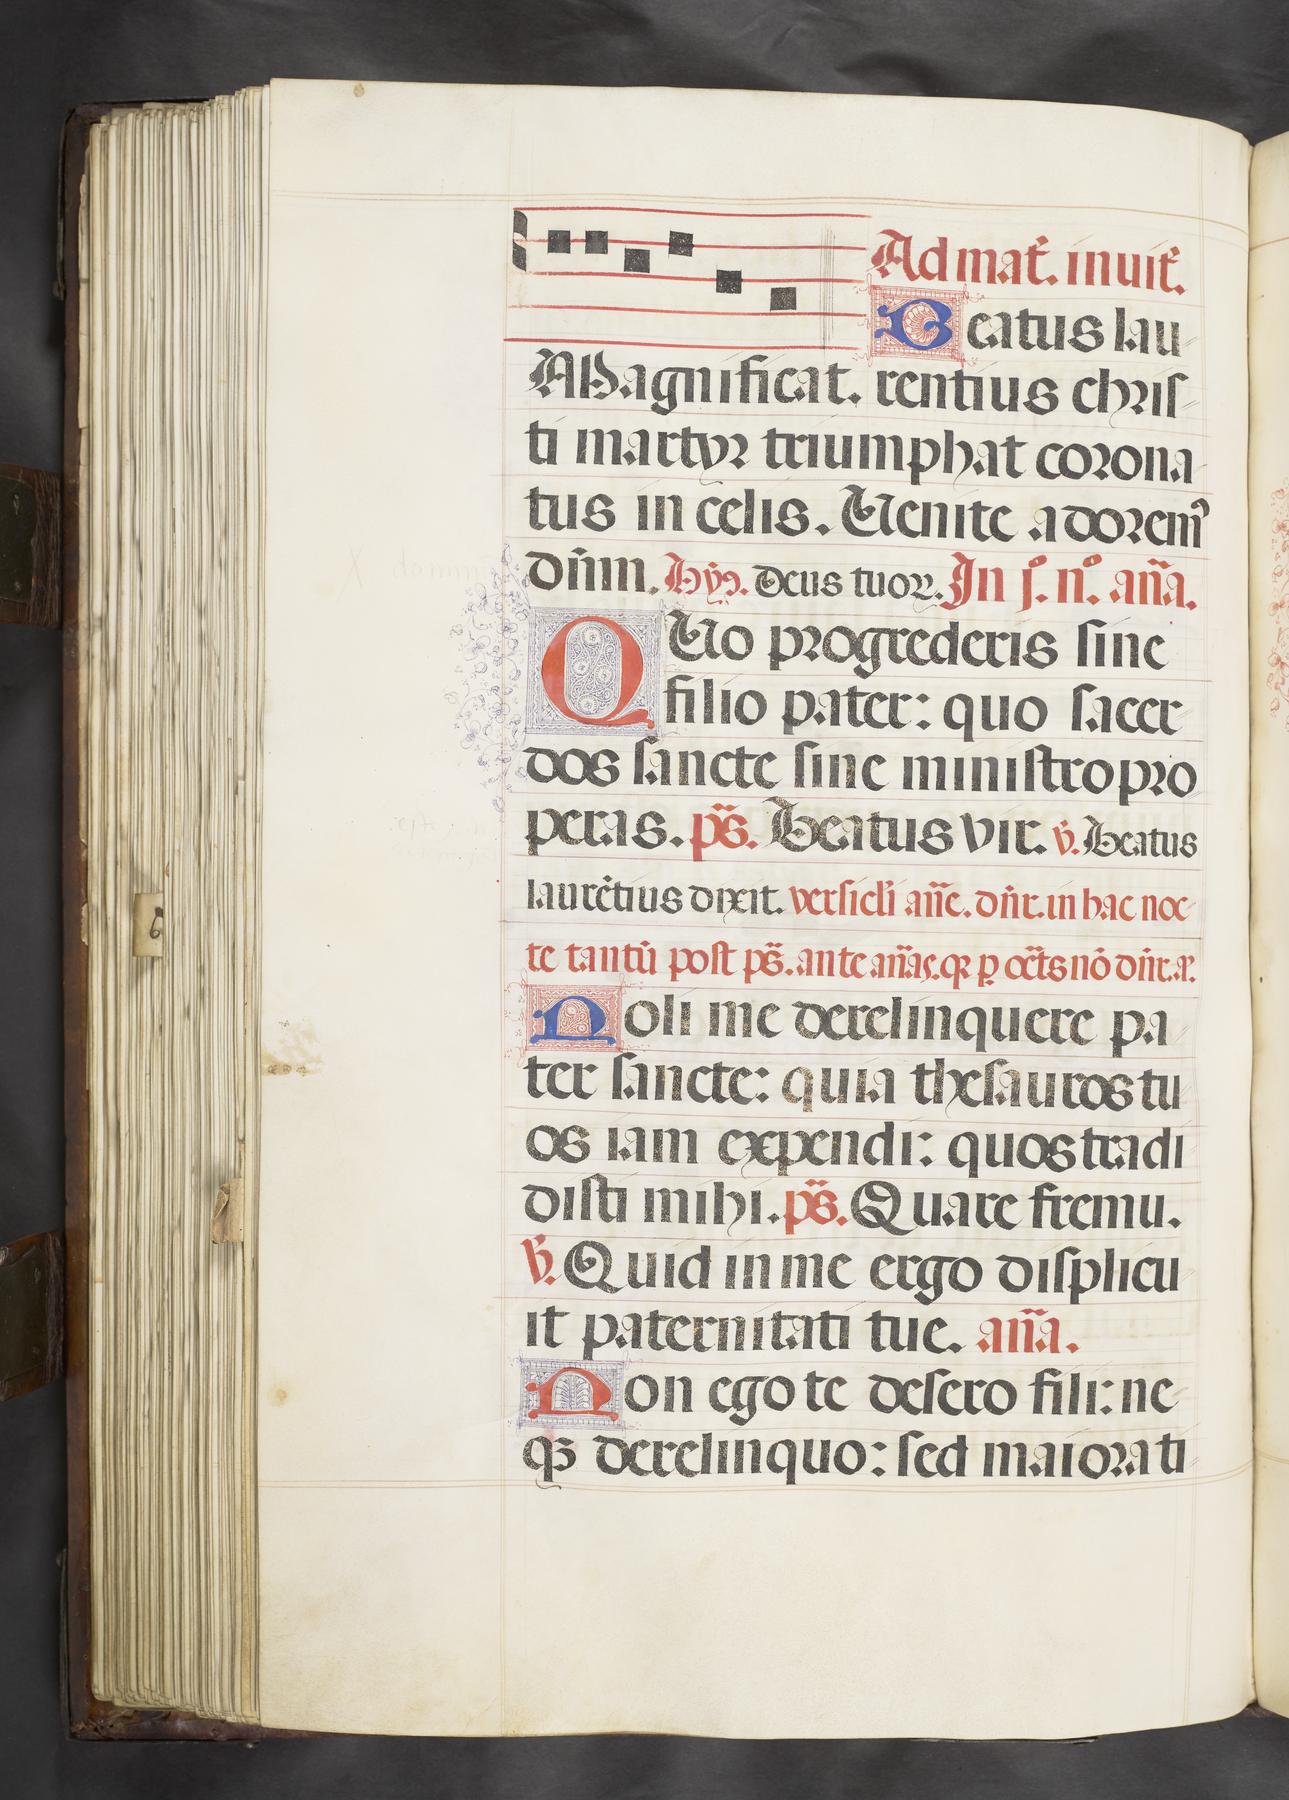 Ad mat̄. inuit̄.
Beatus lau
Magnificat. rentius chris
ti martyr triumphat corona
tus in celis. Uenite adoremꝰ
dn̄m. Hyᷤ. deus tuoꝝ. In j.º n.º an̄a.
QUo progrederis sine
filio pater: quo sacer
dos sancte sine ministro pro
peras. ps̄. Beatus vir. v̄. Beatus
laurētius dixit. versicl̄i an̄e. dn̄r. in hac noc
te tantū post ps̄. ante an̄as. qꝛ ꝑ oct̄s nō dn̄r. a.
Noli me derelinquere pa
ter sancte: quia thesauros tu
os iam expendi: quos tradi
disti mihi. ps̄. Quare fremu.
v̄. Quid in me ergo displicu
it paternitati tue. an̄a.
Non ego te desero fili: ne
qꝫ derelinquo: sed maiora ti
6